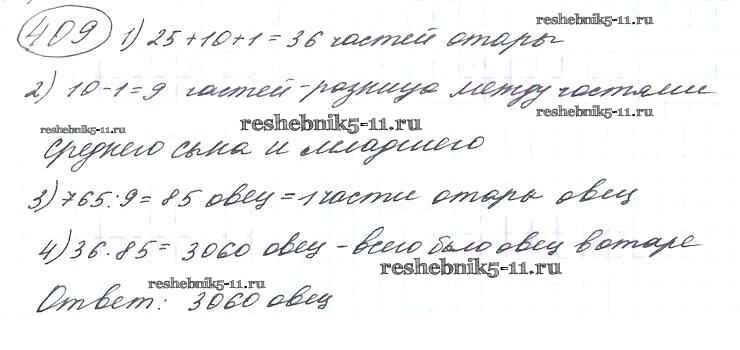 reshebnik5-11.ru
409 1) 25+10+1=36 частей отары
2) 10-1=9 частей - разница между частями
reshebnik5-11.ru
reshebnik5-11.ru
reshebnik5-11.ru
среднего сына и младшего
3) 765:9=85 овец = 1 части отары овец
4) 36·85= 3060 овец - всего было овец в отаре
reshebnik5-11.ru
reshebnik5-11.ru
Ответ: 3060 овец